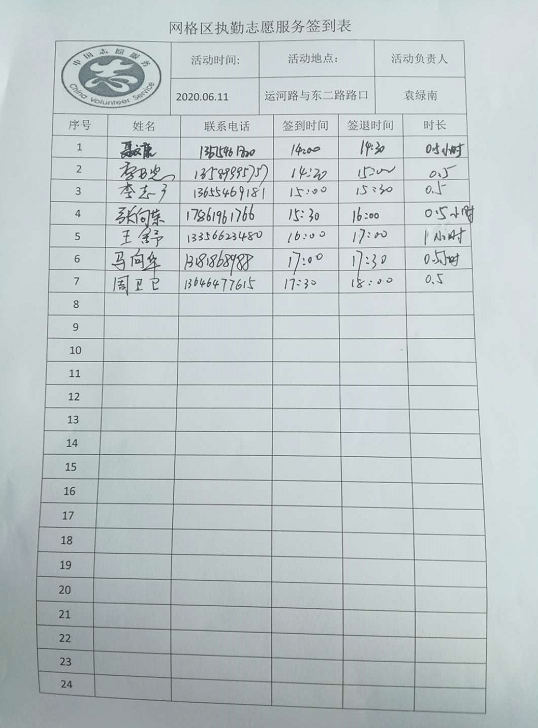 网格区执勤志愿服务签到表
中国志愿服务
China Volunteer Service
活动时间: 活动地点: 活动负责人
2020.06.11 运河路与东二路路口 袁绿南
序号 姓名 联系电话 签到时间 签退时间 时长
1 14:00 14:30 0.5小时
2 14:30 15:00 0.5
3 李志 13655469181 15:00 15:30 0.5
4 张向东 17861961766 15:30 16:00 0.5小时
5 王 13356623480 16:00 17:00 1小时
6 马向华 13181868988 17:00 17:30 0.5小时
7 周卫卫 13646477615 17:30 18:00 0.5
8
9
10
11
12
13
14
15
16
17
18
19
20
21
22
23
24